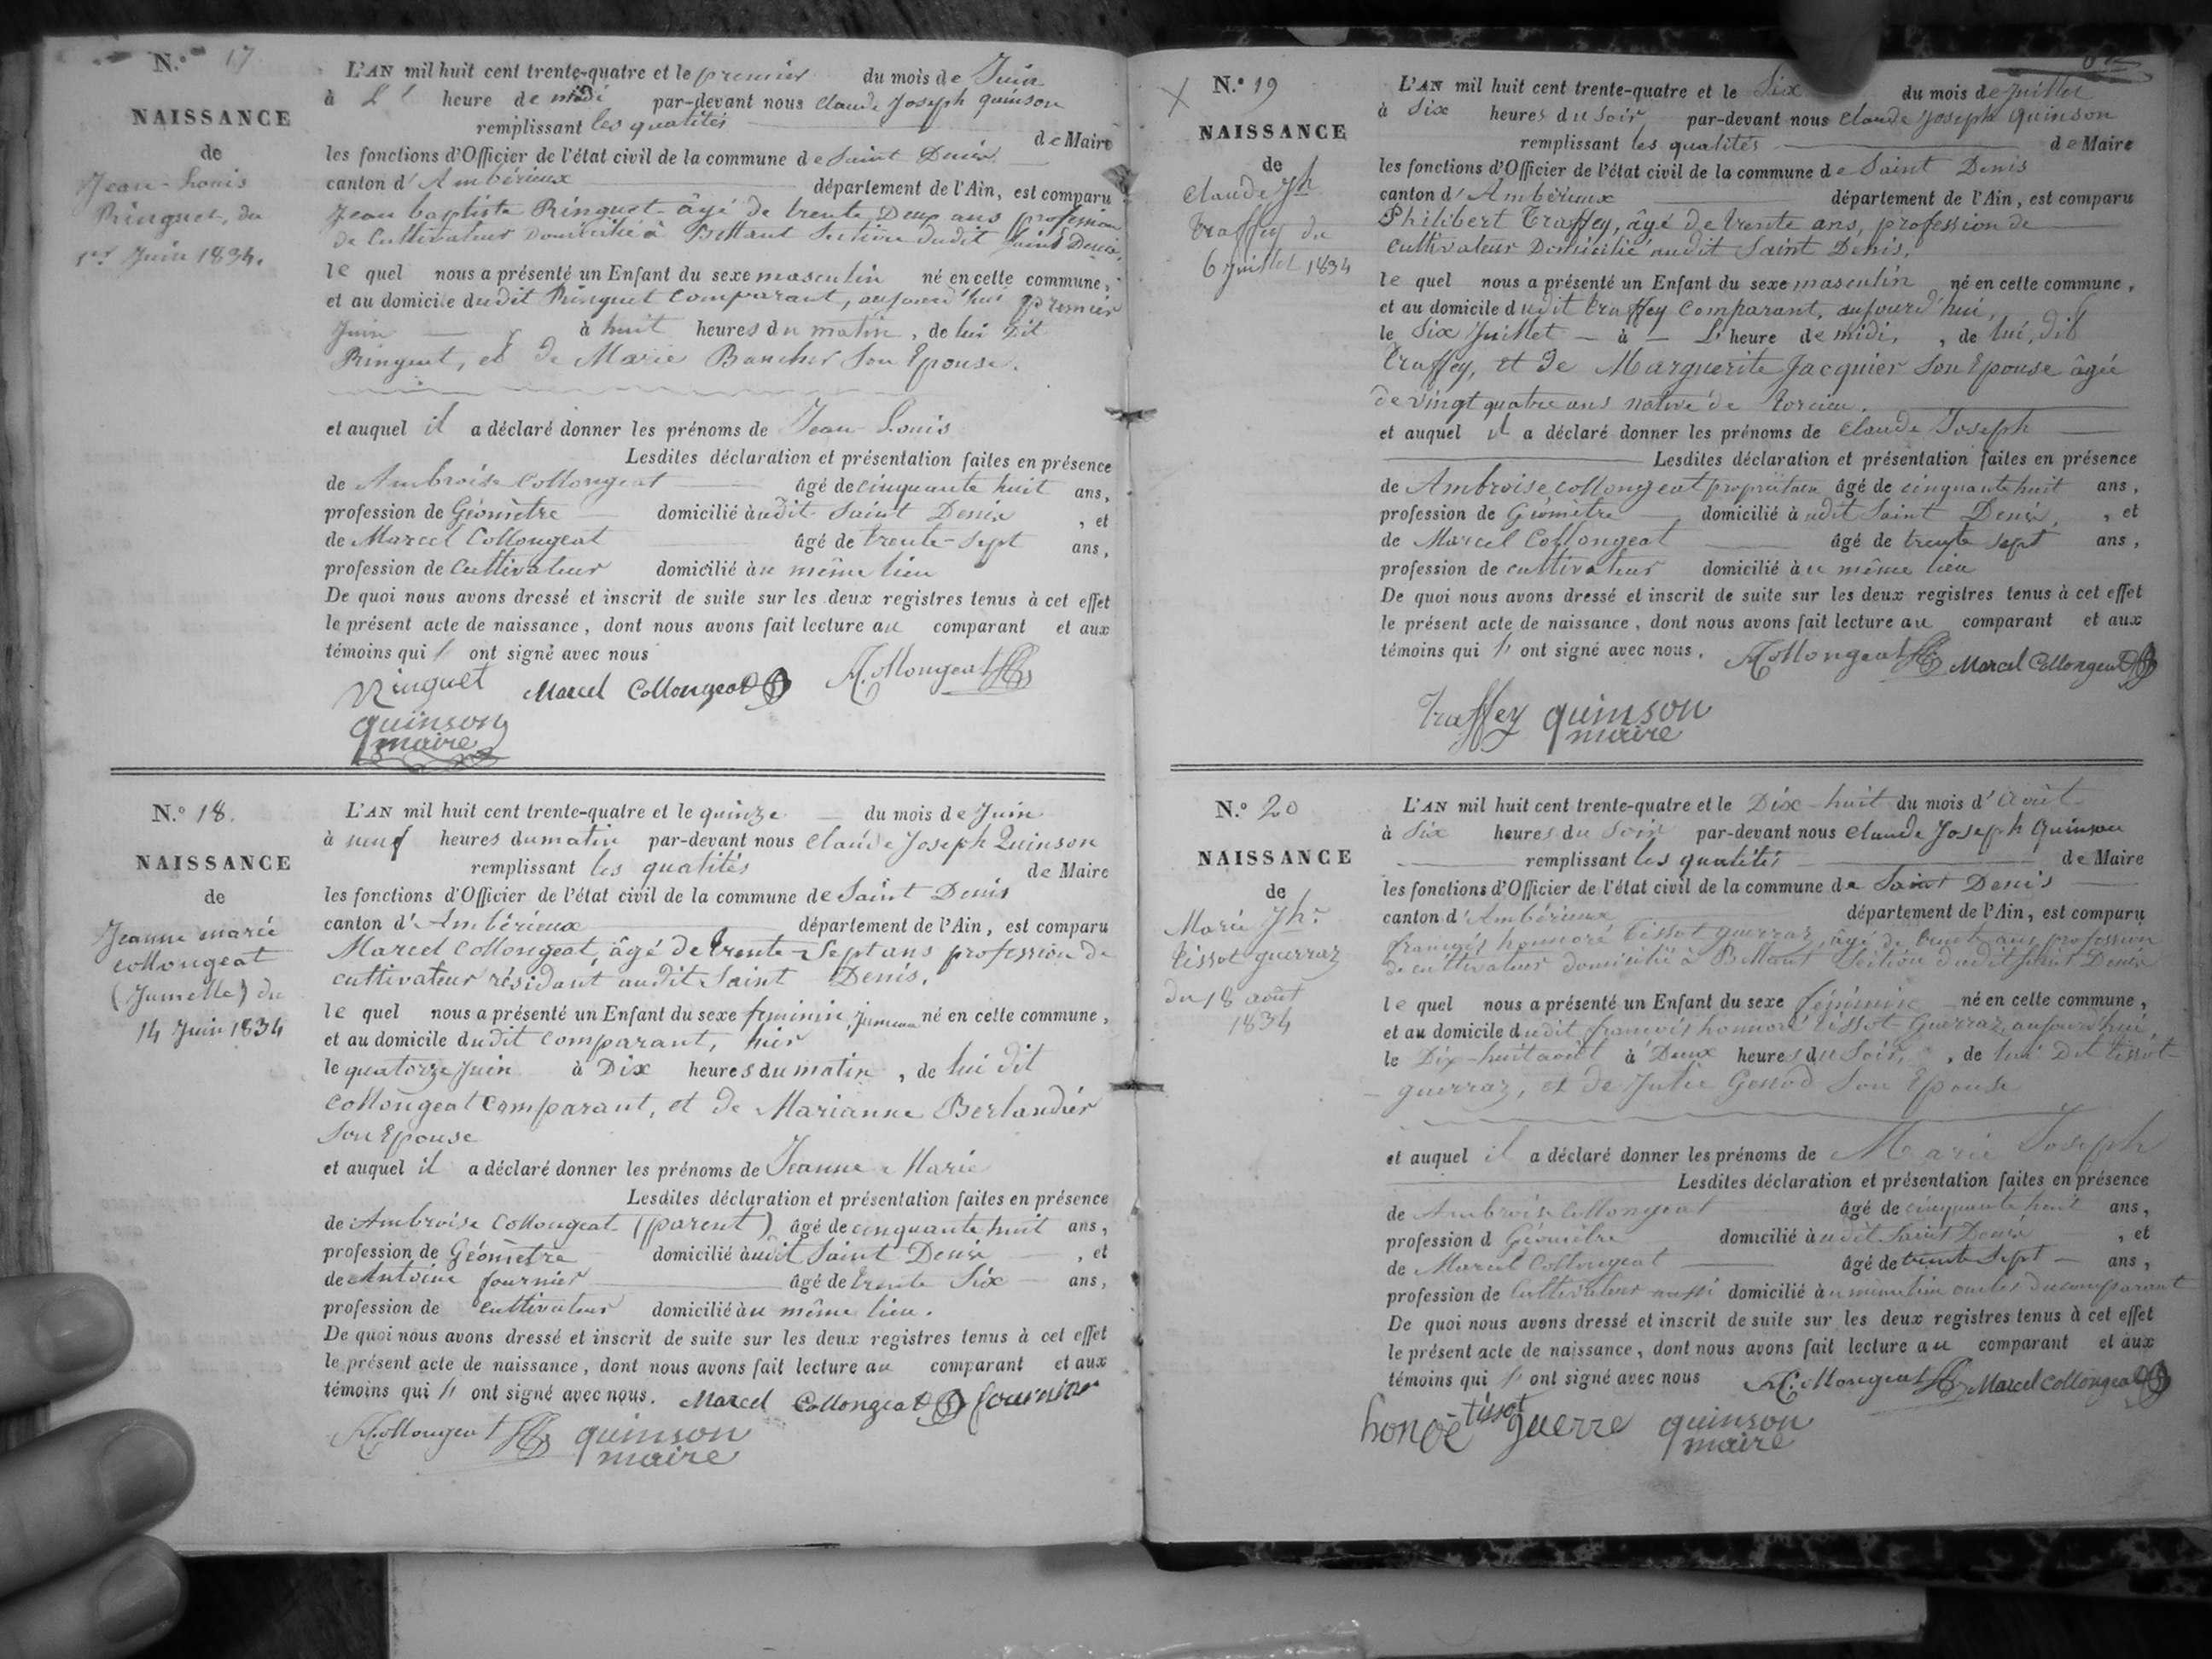 N.° 17
NAISSANCE
de
Jean-Louis
Ringuet, du
1er Juin 1834.
L'AN mil huit cent trente-quatre et le premier du mois de Juin
à L' heure de midi par-devant nous Claude Joseph quinson
remplissant les qualités de Maire
les fonctions d'Officier de l'état civil de la commune de Saint Denis
canton d'Ambérieux département de l'Ain, est comparu
Jean baptiste Ringuet âgé de trente Deux ans profession
de Cultivateur Domicilié à Bettant Section dudit Saint Denis,
le quel nous a présenté un Enfant du sexe masculin né en cette commune,
et au domicile dudit Ringuet comparant, aujourd'hui premier
Juin à huit heures du matin, de lui Dit
Ringuet, et de Marie Boucher Son Epouse.
et auquel il a déclaré donner les prénoms de Jean Louis
Lesdites déclaration et présentation faites en présence
de Ambroise Collongeat âgé de cinquante huit ans,
profession de Géomètre domicilié audit Saint Denis, et
de Marcel Collongeat âgé de trente-sept ans,
profession de Cultivateur domicilié au même lieu
De quoi nous avons dressé et inscrit de suite sur les deux registres tenus à cet effet
le présent acte de naissance, dont nous avons fait lecture au comparant et aux
témoins qui ont signé avec nous
Ringuet Marcel Collongeat A. Collongeat
quinson
maire
N.° 18.
NAISSANCE
de
Jeanne marie
collongeat
(Jumelle) du
14 Juin 1834
L'AN mil huit cent trente-quatre et le quinze du mois de Juin
à neuf heures du matin par-devant nous Claude Joseph Quinson
remplissant les qualités de Maire
les fonctions d'Officier de l'état civil de la commune de Saint Denis
canton d'Ambérieux département de l'Ain, est comparu
Marcel Collongeat, âgé de trente-Sept ans profession de
cultivateur résidant audit Saint Denis.
le quel nous a présenté un Enfant du sexe feminin, jumeau né en cette commune,
et au domicile dudit comparant, hier
le quatorze Juin à Dix heures du matin, de lui dit
Collongeat comparant, et de Marianne Berlandier
Son Epouse
et auquel il a déclaré donner les prénoms de Jeanne Marie
Lesdites déclaration et présentation faites en présence
de Ambroise Collongeat (parent) âgé de cinquante huit ans,
profession de Géomètre domicilié audit Saint Denis, et
de Antoine fournier âgé de trente Six ans,
profession de cultivateur domicilié au même lieu.
De quoi nous avons dressé et inscrit de suite sur les deux registres tenus à cet effet
le présent acte de naissance, dont nous avons fait lecture au comparant et aux
témoins qui ont signé avec nous. Marcel Collongeat fournier
A. Collongeat quinson
maire
N.° 19
NAISSANCE
de
Claude Jh
traffey du
6 juillet 1834
L'AN mil huit cent trente-quatre et le Six du mois de Juillet
à Six heures du Soir par-devant nous Claude Joseph quinson
remplissant les qualités de Maire
les fonctions d'Officier de l'état civil de la commune de Saint Denis
canton d'Ambérieux département de l'Ain, est comparu
Philibert Traffey, âgé de trente ans, profession de
cultivateur Domicilié audit Saint Denis.
le quel nous a présenté un Enfant du sexe masculin né en cette commune,
et au domicile dudit traffey comparant, aujourd'hui,
le Six Juillet à L'heure de midi, de lui, dit
traffey, et de Marguerite Jacquier Son Epouse âgée
de vingt quatre ans native de torcieu.
et auquel il a déclaré donner les prénoms de Claude Joseph
Lesdites déclaration et présentation faites en présence
de Ambroise collongeat propriétaire âgé de cinquante huit ans,
profession de Géomètre domicilié audit Saint Denis, et
de Marcel Collongeat âgé de trente sept ans,
profession de cultivateur domicilié au même lieu
De quoi nous avons dressé et inscrit de suite sur les deux registres tenus à cet effet
le présent acte de naissance, dont nous avons fait lecture au comparant et aux
témoins qui ont signé avec nous. A. Collongeat Marcel Collongeat
traffey quinson
maire
N.° 20
NAISSANCE
de
Marie Jh.
tissot guerraz
du 18 août
1834
L'AN mil huit cent trente-quatre et le Dix-huit du mois d'Août
à Six heures du Soir par-devant nous Claude Joseph Quinson
remplissant les qualités de Maire
les fonctions d'Officier de l'état civil de la commune de Saint Denis
canton d'Ambérieux département de l'Ain, est comparu
françois honnoré tissot guerraz, âgé de trente ans profession
de cultivateur domicilié à Bettant Section dudit Saint Denis
le quel nous a présenté un Enfant du sexe féminin né en cette commune,
et au domicile dudit françois honnoré tissot Guerraz, aujourd'hui,
le Dix-huit août à Deux heures du Soir, de lui Dit tissot
guerraz, et de Julie Genod Son Epouse
et auquel il a déclaré donner les prénoms de Marie Joseph
Lesdites déclaration et présentation faites en présence
de Ambroise Collongeat âgé de cinquante huit ans,
profession d Géomètre domicilié audit Saint Denis, et
de Marcel Collongeat âgé de trente Sept ans,
profession de Cultivateur aussi domicilié au même lieu oncles du comparant
De quoi nous avons dressé et inscrit de suite sur les deux registres tenus à cet effet
le présent acte de naissance, dont nous avons fait lecture au comparant et aux
témoins qui ont signé avec nous A. Collongeat Marcel Collongeat
honoré tissot guerre quinson
maire